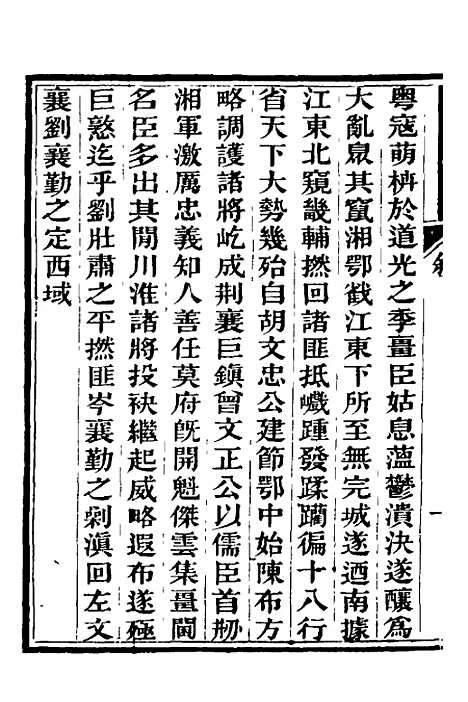 粵寇萌枿於道光之季畺臣姑息薀鬱潰決遂釀爲
大亂㒸其竄湘鄂戡江東下所至無完城遂迺南據
江東北窺畿輔撚回諸匪抵巇踵發蹂躪徧十八行
省天下大勢幾殆自胡文忠公建節鄂中始陳布方
略調護諸將屹成荆襄巨鎭曾文正公以儒臣首剏
湘軍激厲忠義知人善任莫府旣開魁傑雲集畺閫
名臣多出其閒川淮諸將投袂繼起威略遐布遂殛
巨憝迄乎劉壯肅之平撚匪岑襄勤之剿滇回左文
襄劉襄勤之定西域